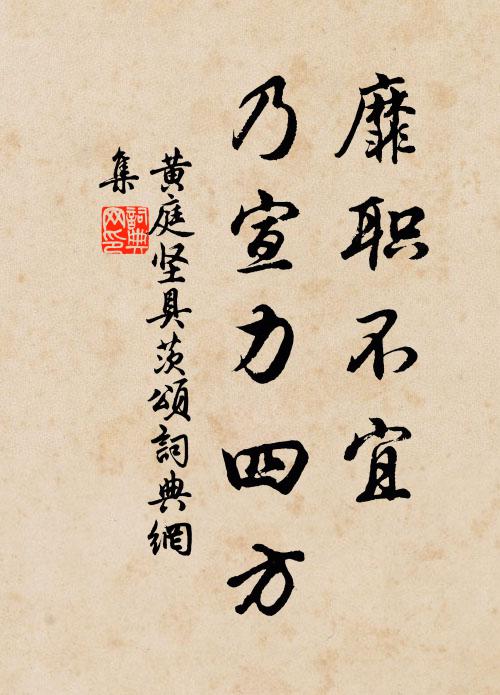 靡职不宜
乃宣力四方
黄庭坚具茨頌詞典網
集
詞典
网印